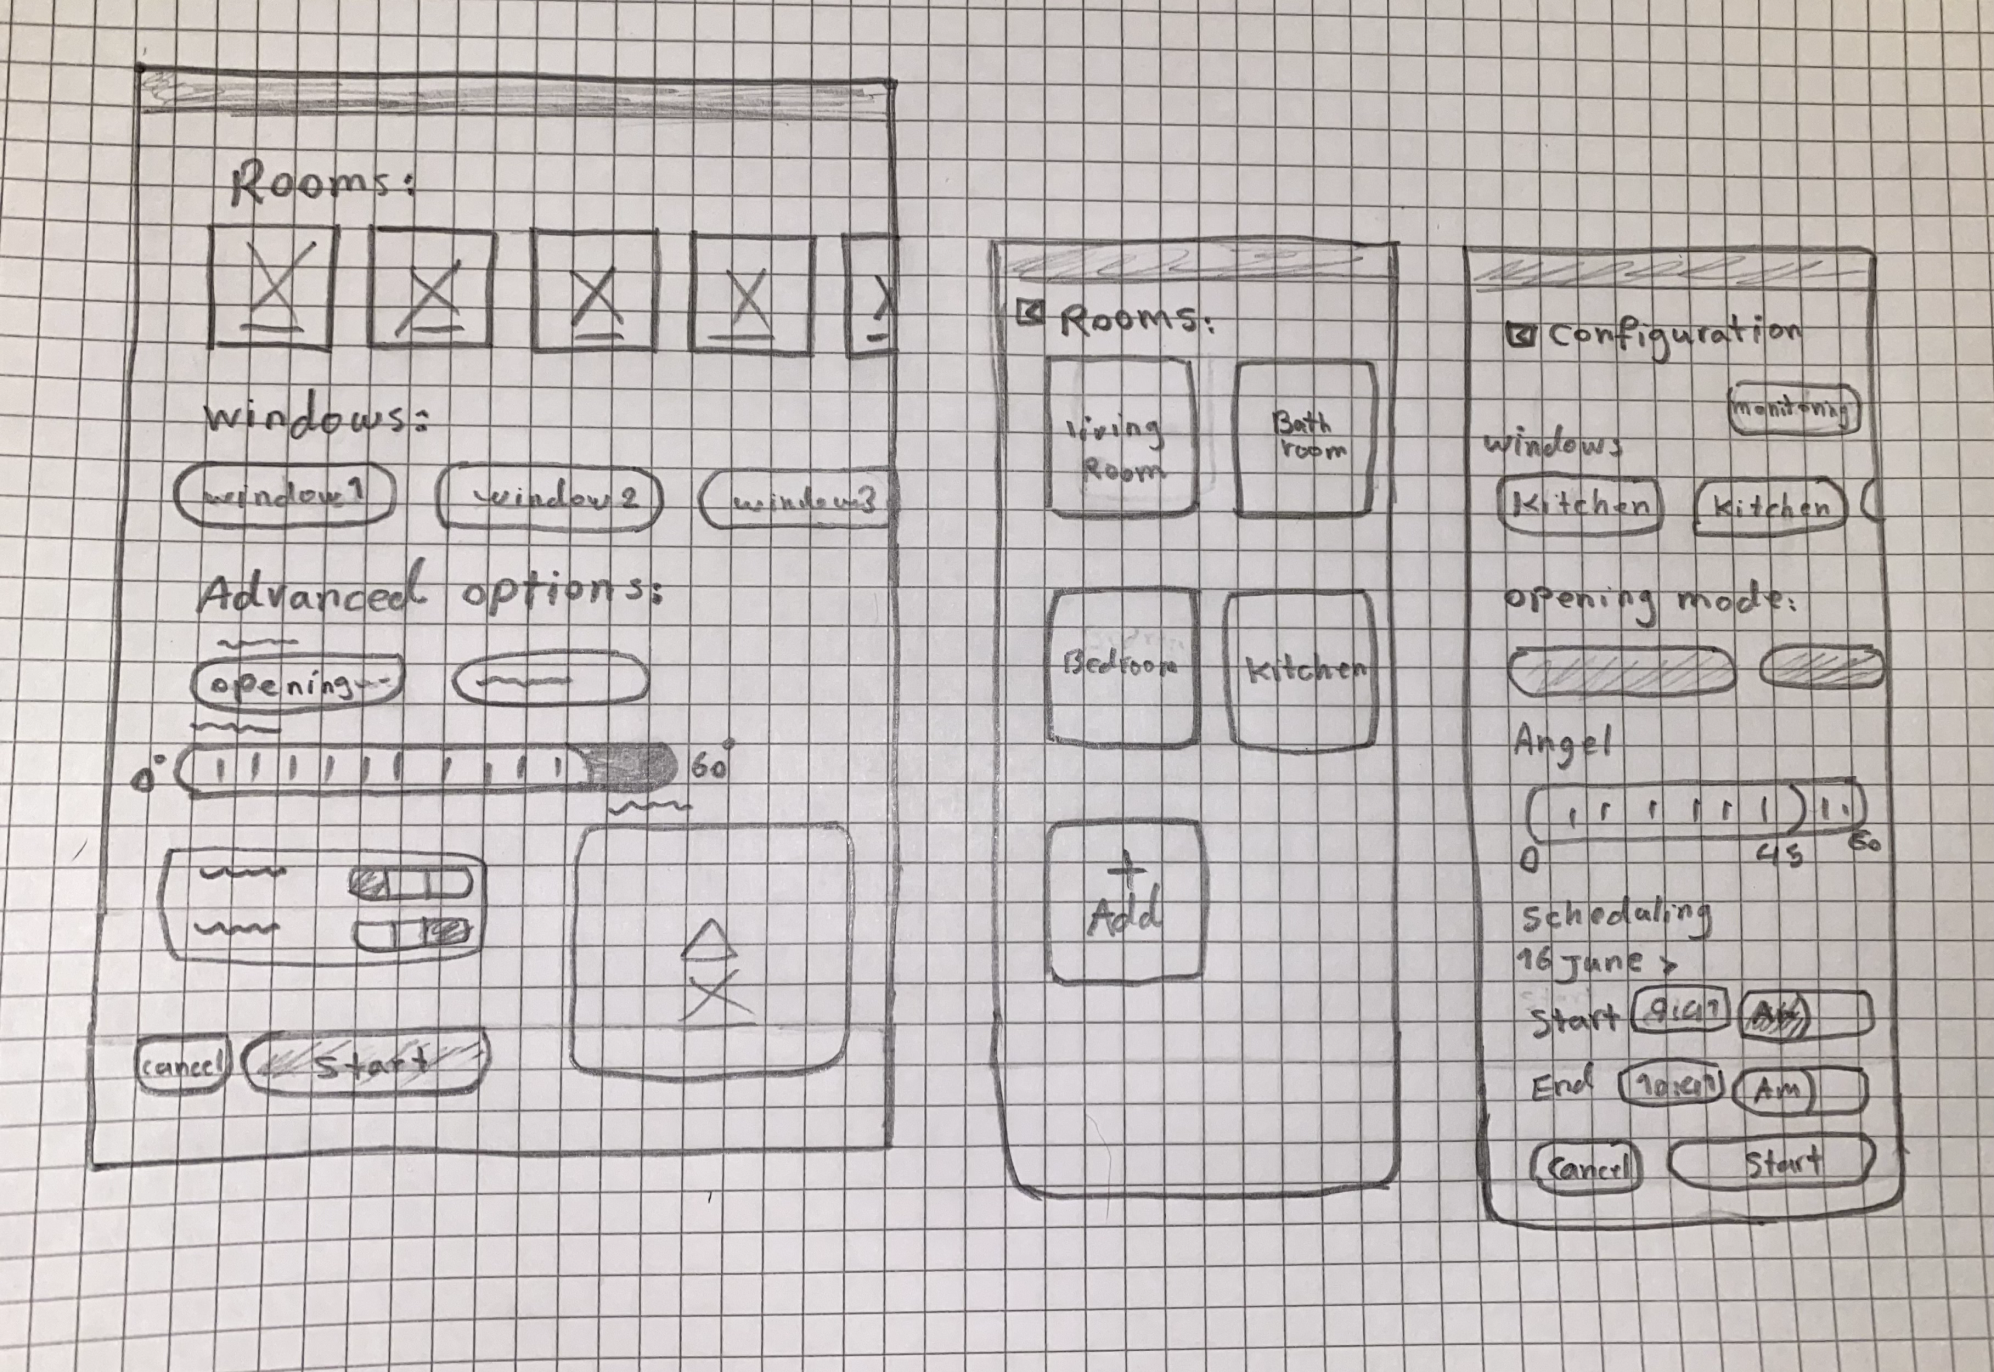 Rooms:
windows:
window1 window2 window3
Advanced options:
opening
0° 60°
cancel Start
Rooms:
living Room
Bath room
Bedroom
Kitchen
+
Add
Configuration
monitoring
windows
Kitchen Kitchen
opening mode:
Angel
0 45 60
Schedaling
16 June >
Start AM
End Am
Cancel Start